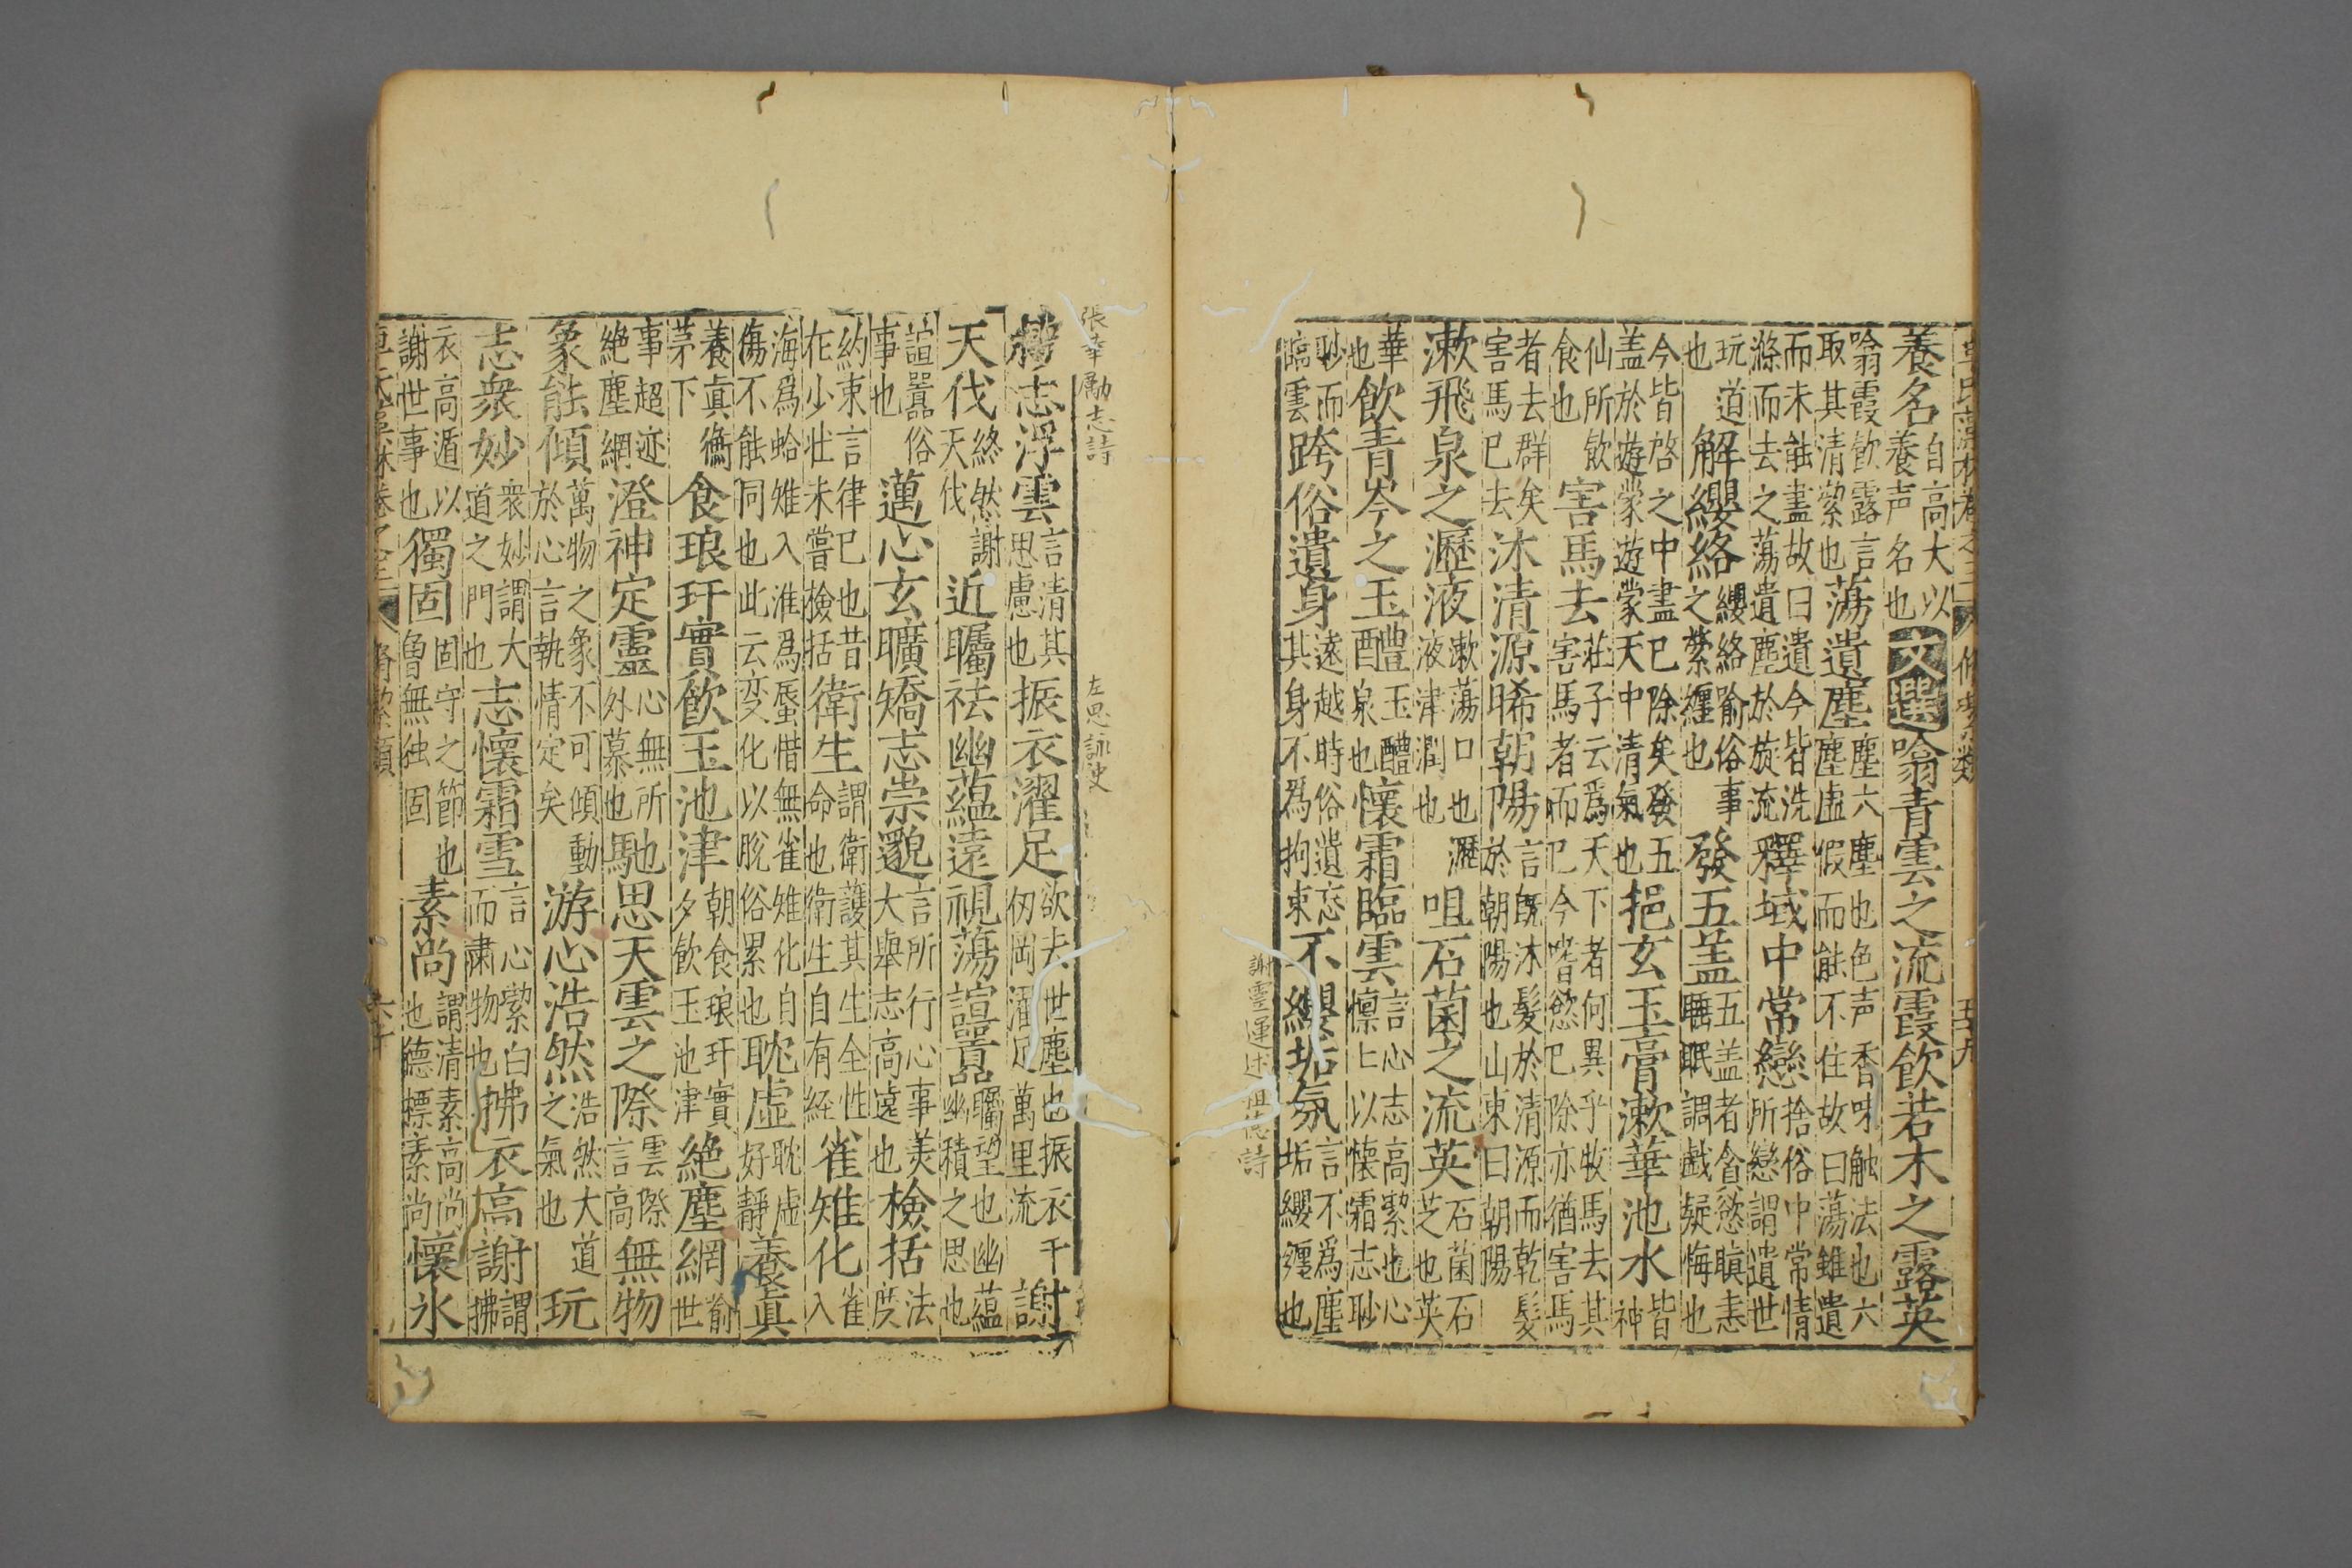 養名自高大以養声名也文選噏青雲之流霞飲若木之露英
噏霞飲露言取其清潔也蕩遺塵塵六塵也色声香味触法也六塵虛假而能不住故曰蕩雖遺
而未能盡故曰遺今皆洗滌而去之蕩遺塵於旋流釋域中常戀捨俗中常情所戀謂遺世
玩道也解纓絡纓絡喻俗事之縈纏也發五盖五盖者貪慾瞋恚睡眠調戲疑悔也
今皆啓之中盡已除矣發五盖於遊蒙遊蒙天中清氣也挹玄玉膏漱華池水皆神
仙所飲食也害馬去莊子云爲天下者何異乎牧馬去其害馬者而已今嗜慾已除亦猶害馬
者去群矣害馬已去沐清源晞朝陽言既沐髮於清源而乾髮於朝陽也山東曰朝陽
漱飛泉之瀝液漱蕩口也瀝液津潤也咀石菌之流英石菌石芝也英
華也飲青岑之玉醴玉醴泉也懷霜臨雲言心志高潔也心懍懍以懷霜志眇
眇而臨雲跨俗遺身遠越時俗遺忘其身不爲拘束不纓垢氛言不爲塵垢纓纏也
謝靈運述祖德詩
張華勵志詩
左思詠史
勞志浮雲言清其思慮也振衣濯足欲去世塵也振衣千仞岡濯足萬里流謝
天伐終然謝天伐近矚祛幽蘊遠視蕩諠囂矚望也幽蘊幽積之思也
諠囂俗事也邁心玄曠矯志崇邈言所行心事美大舉志高遠也檢括法度
約束言律已也昔在少壯未嘗檢括衛生謂衛護其生全性命也衛生自有経雀雉化雀入
海爲蛤雉入淮爲蜃惜無雀雉化自傷不能同也此云变化以脫俗累也耽虛耽虛好靜養真
養真衡茅下食琅玕實飲玉池津朝食琅玕實夕飲玉池津絶塵網喻世
事超迹絶塵網澄神定靈心無所外慕也馳思天雲之際雲際言高無物
象能傾萬物之象不可傾動於心言執情定矣游心浩然浩然大道之氣也玩
志衆妙衆妙謂大道之門也志懷霜雪言心潔白而肅物也拂衣高謝謂拂
衣高遁以謝世事也獨固固守之節也魯無独固素尚謂清素高尚也德標素尚懷氷